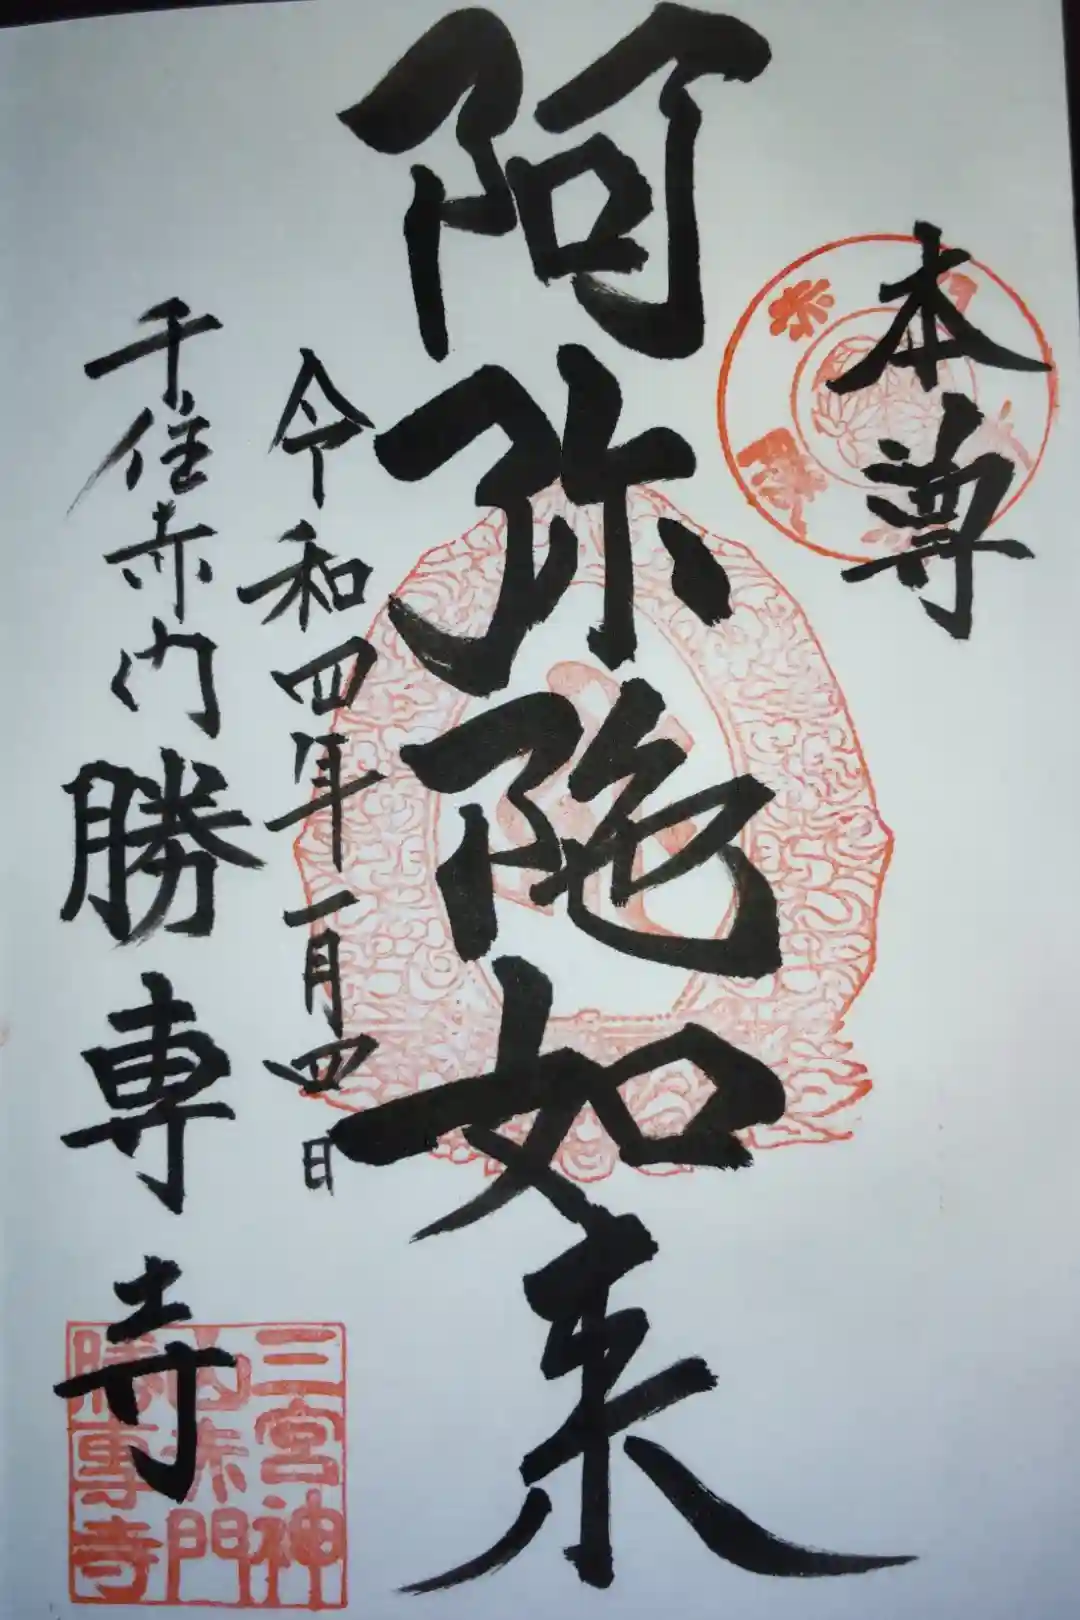 本尊
阿弥陀如来
令和四年一月四日
千住赤門
勝専寺
三宮神
山赤門
勝専寺